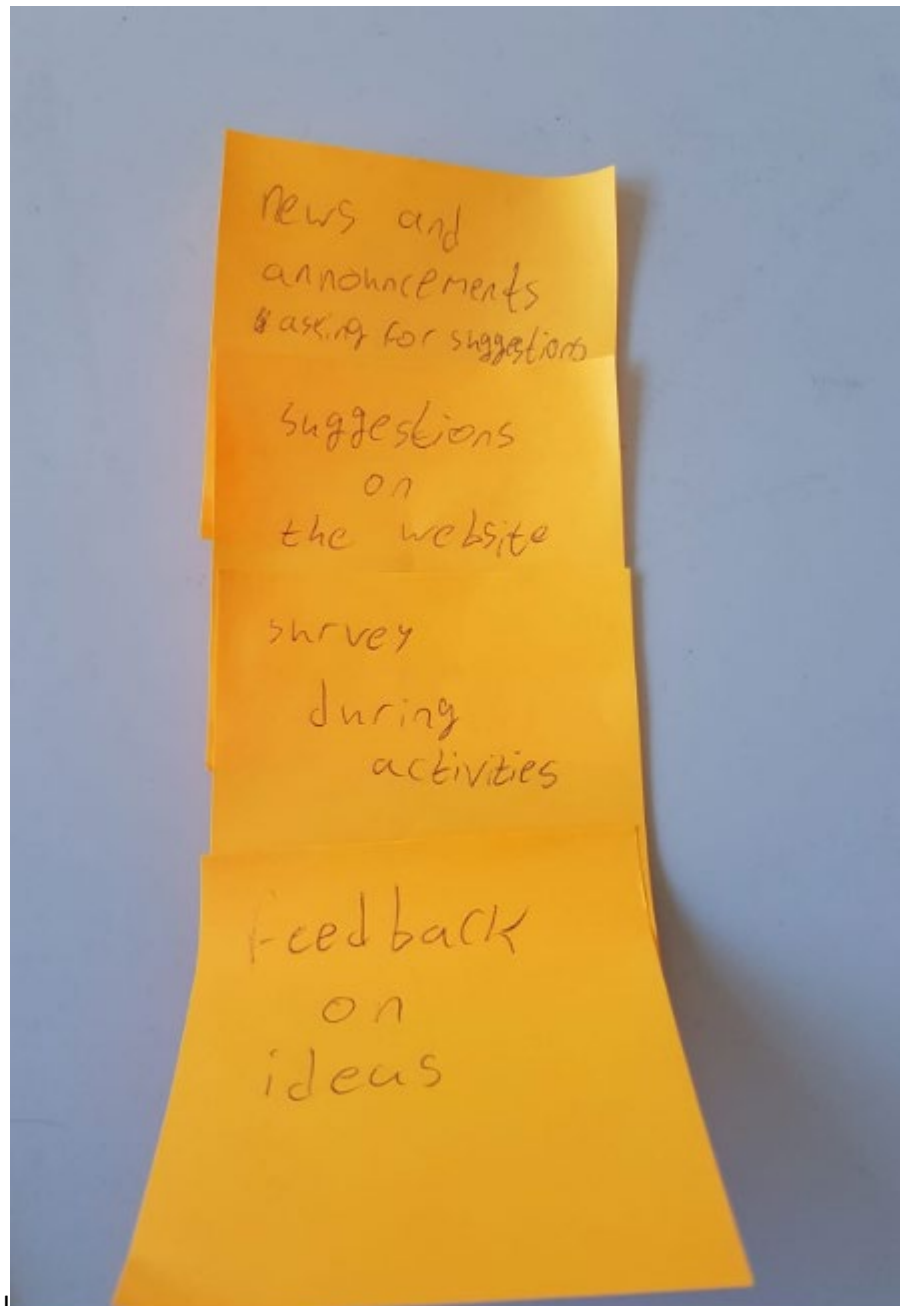 news and
announcements
asking for suggestions
suggestions
on
the website
survey
during
activities
Feedback
on
ideas